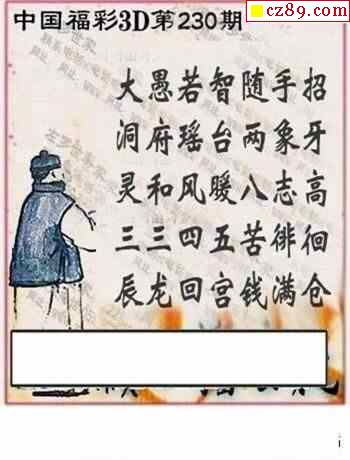 cz89.com
中国福彩3D第230期
大愚若智随手招
洞府瑶台两象牙
灵和风暖八志高
三三四五苦徘徊
辰龙回宫钱满仓